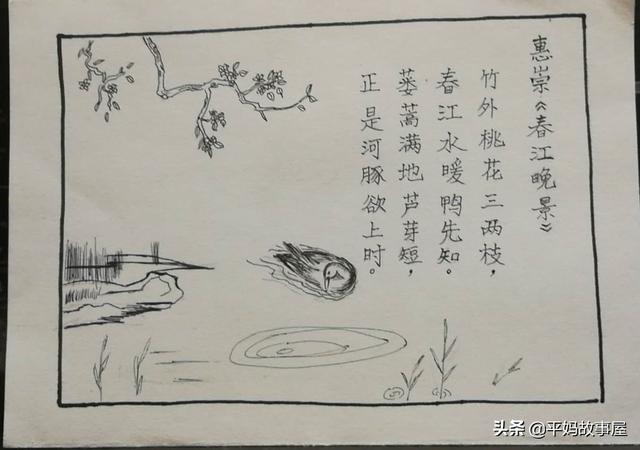 惠崇《春江晚景》
竹外桃花三两枝，
春江水暖鸭先知。
蒌蒿满地芦芽短，
正是河豚欲上时。
头条 @平妈故事屋